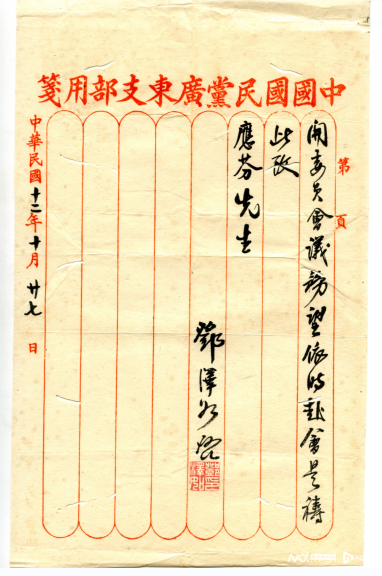 中國國民黨廣東支部用箋
第 頁
開委員會議務望依時赴會是禱
此致
應芬先生
鄧澤如啓
中華民國十二年十月廿七日